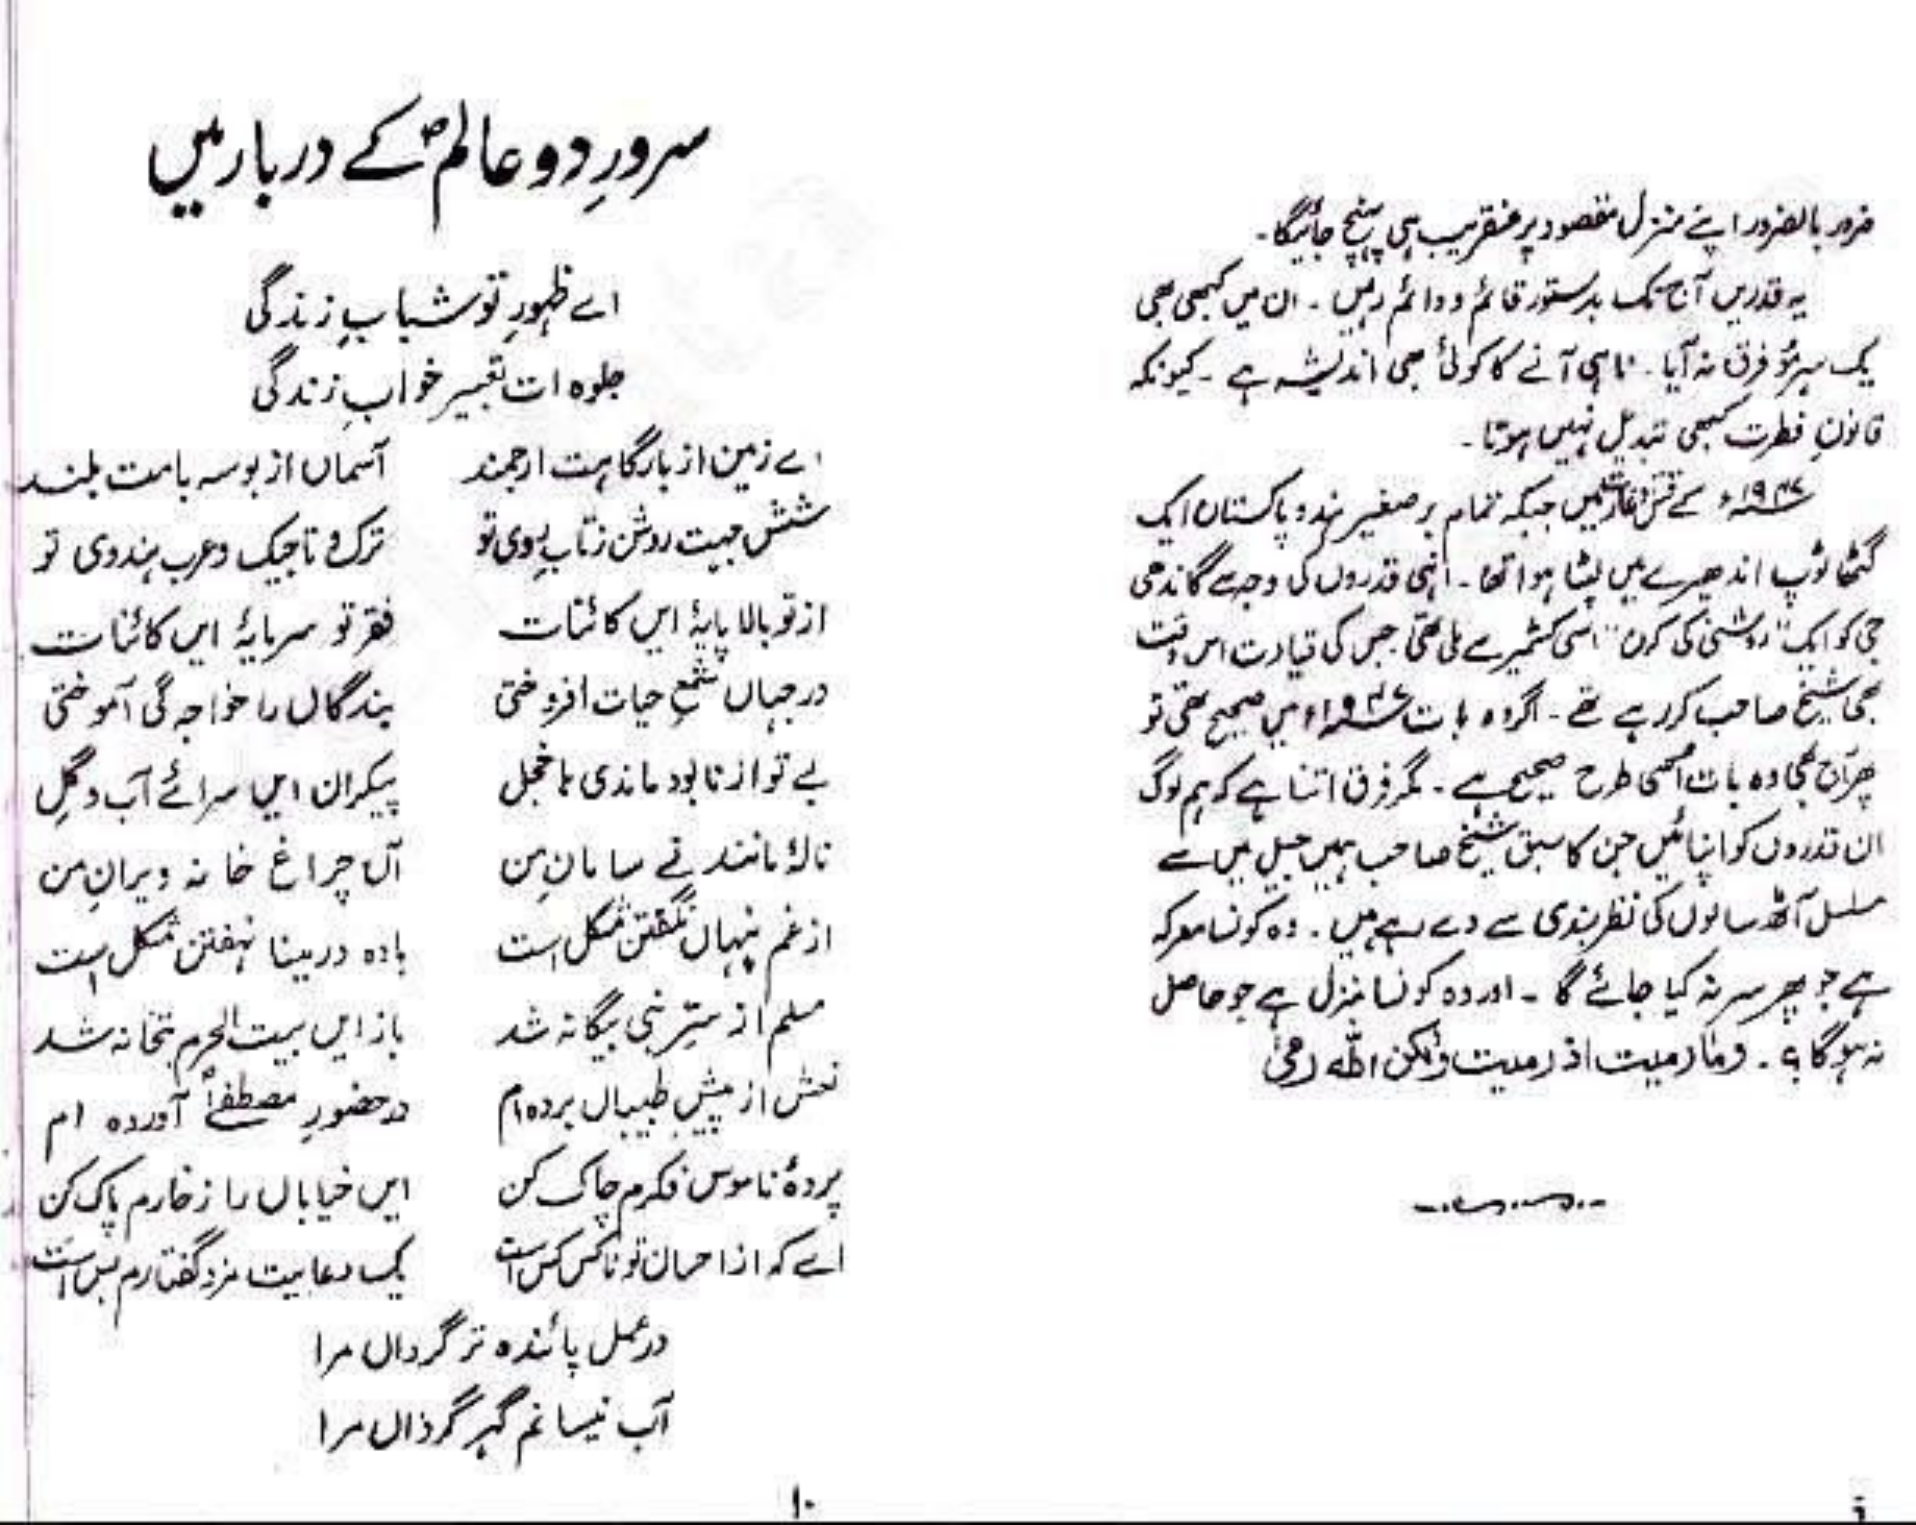 ضرور بالضرور اپنے منزل مقصود پر عنقریب ہی پہنچ جائیگا۔
یہ قدریں آج تک بدستور قائم و دوائم رہیں۔ ان میں کبھی بھی
یک سرِمُو فرق نہ آیا۔ ناہی آنے کا کوئی بھی اندیشہ ہے۔ کیونکہ
قانونِ فطرت کبھی تبدیل نہیں ہوتا۔
۱۹۴۷ء کے قتل و غارت میں جبکہ تمام برصغیر ہندو پاکستان ایک
گھٹا ٹوپ اندھیرے میں لپٹا ہوا تھا۔ انہی قدروں کی وجہ سے گاندھی
جی کو ایک "روشنی کی کرن" اسی کشمیر سے ملی تھی جس کی قیادت اس وقت
بھی شیخ صاحب کر رہے تھے۔ اگر وہ بات ۱۹۴۷ء میں صحیح تھی تو
پھر آج بھی وہ بات اسی طرح صحیح ہے۔ مگر فرق اتنا ہے کہ ہم لوگ
ان قدروں کو اپنائیں جن کا سبق شیخ صاحب ہمیں جیل میں سے
مسلسل آٹھ سالوں کی نظر بندی سے دے رہے ہیں۔ وہ کونسا معرکہ
ہے جو پھر سر نہ کیا جائے گا۔ اور وہ کونسا منزل ہے جو حاصل
نہ ہو گا؟۔ وما رمیت اذ رمیت ولٰکن اللہ رمیٰ
سرورِ دو عالمؐ کے دربار میں
اے ظہورِ تو شبابِ زندگی
جلوہ ات تعبیر خوابِ زندگی
اے زمین از بارگاہت ارجمند آسماں از بوسہ بامت بلند
شش جہت روشن زتابِ روی تو ترک و تاجیک و عرب ہندوی تو
از تو بالا پایۂ ایں کائنات فقر تو سرمایۂ ایں کائنات
در جہاں شمعِ حیات افروختی بندگاں را خواجہ گی آموختی
بے تو از نابود ماندی ہا خجل پیکران ایں سرائے آب و گِل
نالۂ مانند نے سامانِ من آں چراغ خانہ ویرانِ من
از غم پنہاں نگفتن مشکل است بادہ در مینا نہفتن مشکل است
مسلم از سِرِّ نبی بیگانہ شد باز ایں بیت الحرم بتخانہ شد
نعش از پیشِ طبیباں بردہ ام در حضورِ مصطفےٰؐ آوردہ ام
پردۂ ناموس فکرم چاک کن ایں خیاباں را زخارم پاک کن
اے کہ از احسان تو ناکس کس است یک دعایت مزد گفتارم بس است
در عمل پائندہ تر گرداں مرا
آب نیسانم گہر گرداں مرا
۱۰